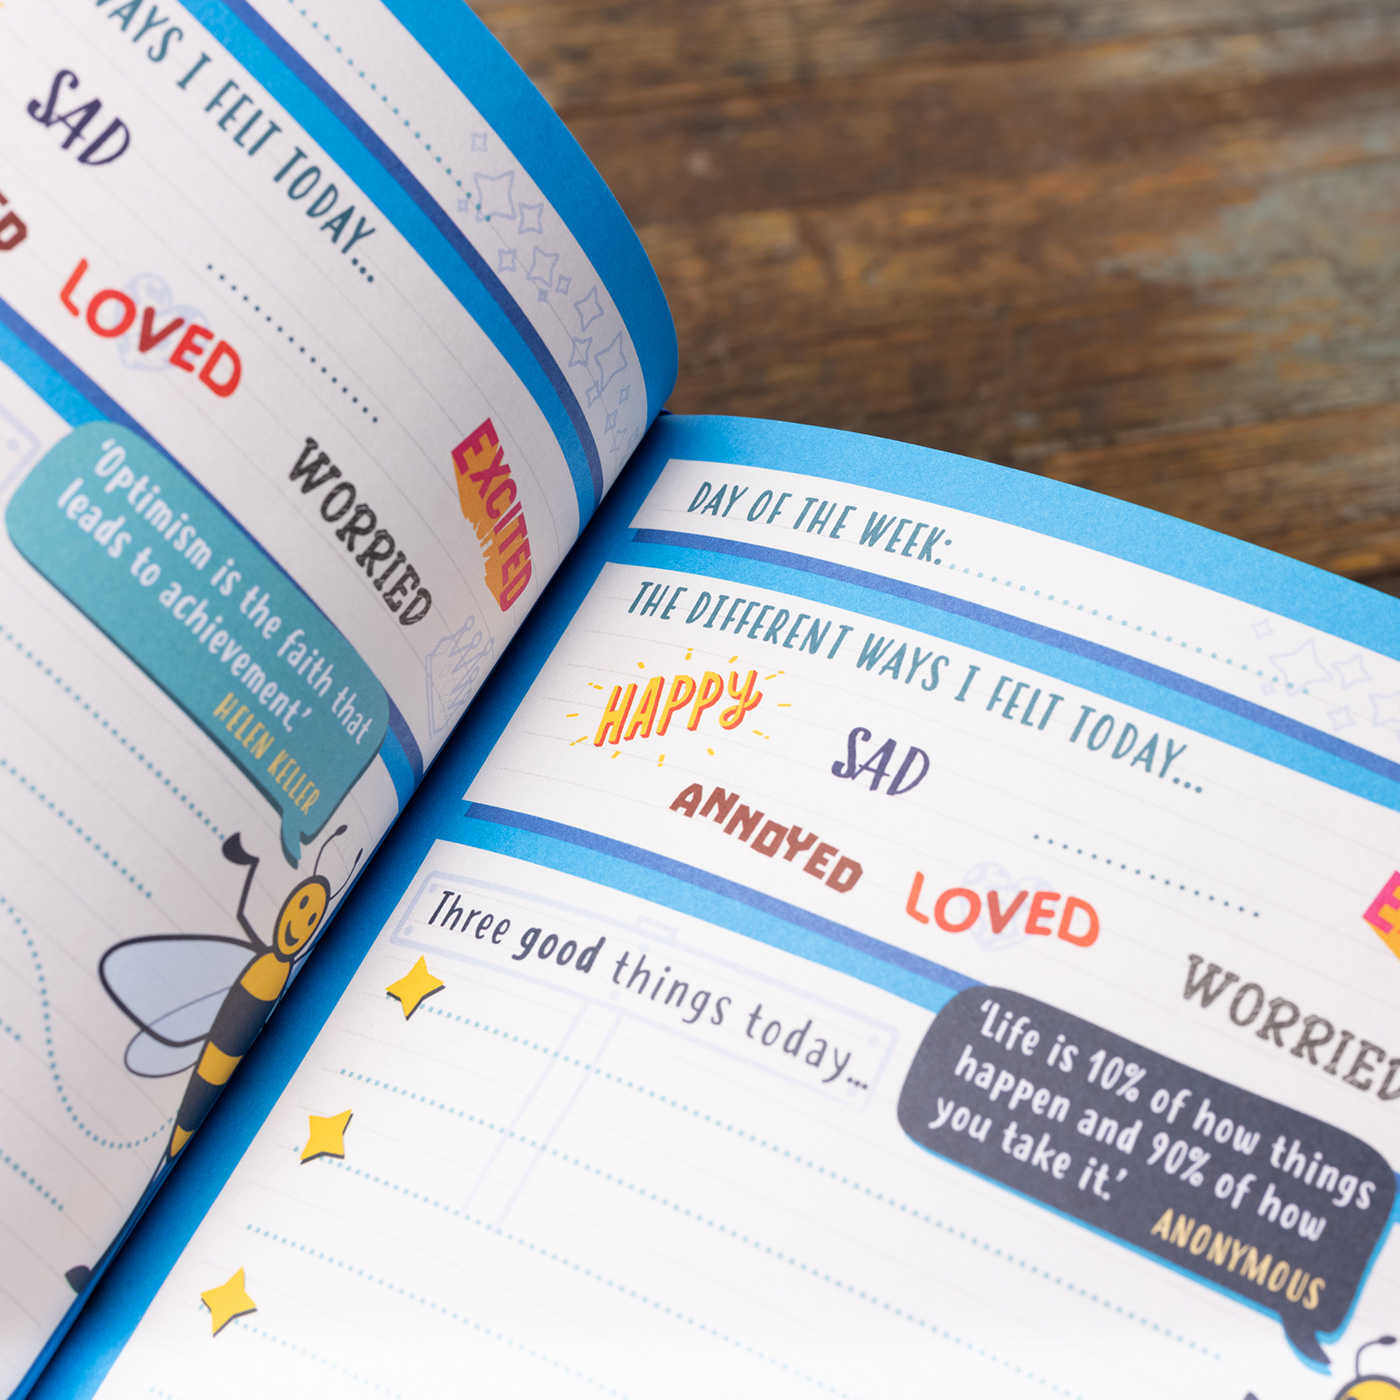 WAYS I FELT TODAY...
SAD
LOVED
WORRIED
EXCITED
'Optimism is the faith that
leads to achievement.'
HELEN KELLER
DAY OF THE WEEK:
THE DIFFERENT WAYS I FELT TODAY...
HAPPY
SAD
ANNOYED
LOVED
WORRIED
Three good things today...
'Life is 10% of how things
happen and 90% of how
you take it.'
ANONYMOUS